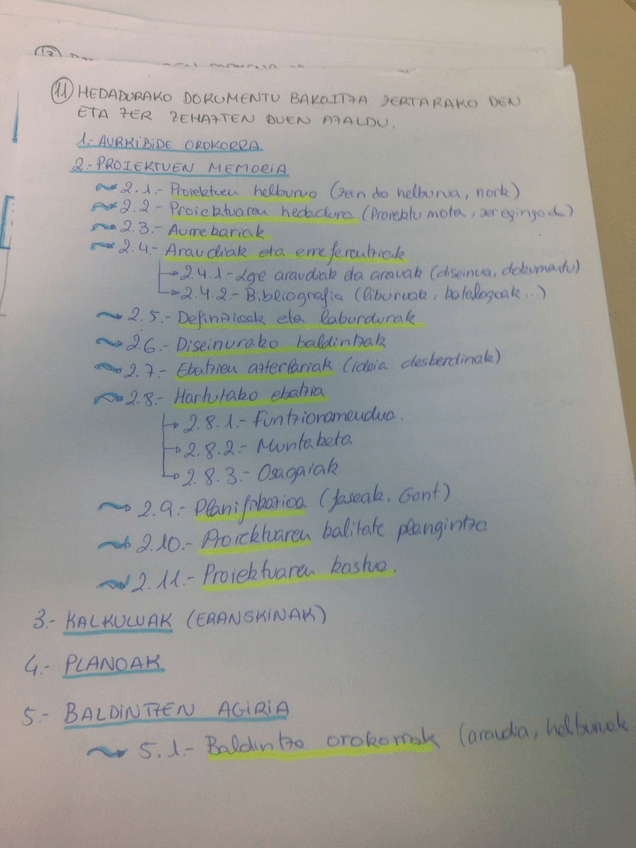 11 HEDADURAKO DOKUMENTU BAKOITZA ZERTARAKO DEN
ETA ZER ZEHAZTEN DUEN AZALDU.
1.- AURKIBIDE OROKORRA
2.- PROIEKTUEN MEMORIA
2.1.- Proiektuen helburua (zan da helburua, nork)
2.2.- Proiektuaren hedadura (Proiektu mota, zer egingo da)
2.3.- Aurrekariak
2.4.- Araudiak eta erreferentziak
2.4.1- Lege araudiak da arauak (diseinua, dokumentu)
2.4.2- Bibliografia (liburuak, katalogoak...)
2.5.- Definizioak eta laburdurak
2.6.- Diseinurako baldintzak
2.7.- Ebatzien azterlariak (ideia desberdinak)
2.8.- Hartutako ebatzia
2.8.1.- Funtzionamendua.
2.8.2.- Muntaketa
2.8.3.- Osagaiak
2.9.- Planifikazioa (faseak, Gant)
2.10.- Proiektuaren kalitate plangintza
2.11.- Proiektuaren kostua.
3.- KALKULUAK (ERANSKINAK)
4.- PLANOAK
5.- BALDINTZEN AGIRIA
5.1.- Baldintza orokorrak (araudia, helburuak